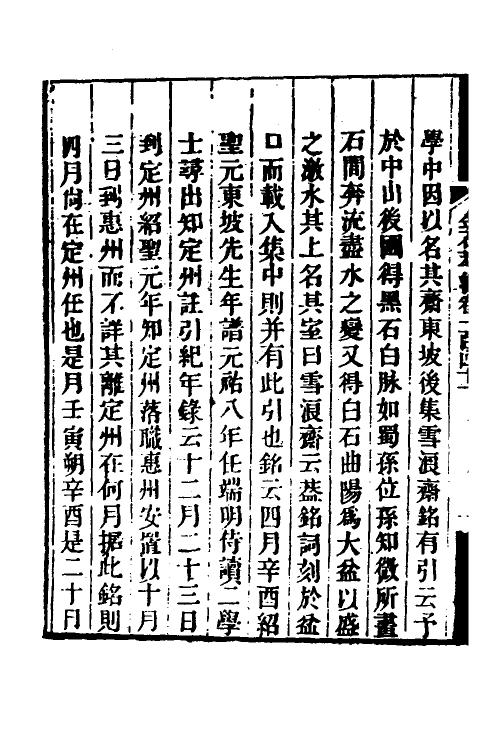 學中因以名其齋東坡後集雪浪齋銘有引云予
於中山後圃得黑石白脉如蜀孫位孫知微所畫
石間奔流盡水之變又得白石曲陽爲大盆以盛
之激水其上名其室曰雪浪齋云葢銘詞刻於盆
口而載入集中則并有此引也銘云四月辛酉紹
聖元東坡先生年譜元祐八年任端明侍讀二學
士尋出知定州註引紀年錄云十二月二十三日
到定州紹聖元年知定州落職惠州安置以十月
三日到惠州而不詳其離定州在何月據此銘則
四月尙在定州任也是月壬寅朔辛酉是二十日